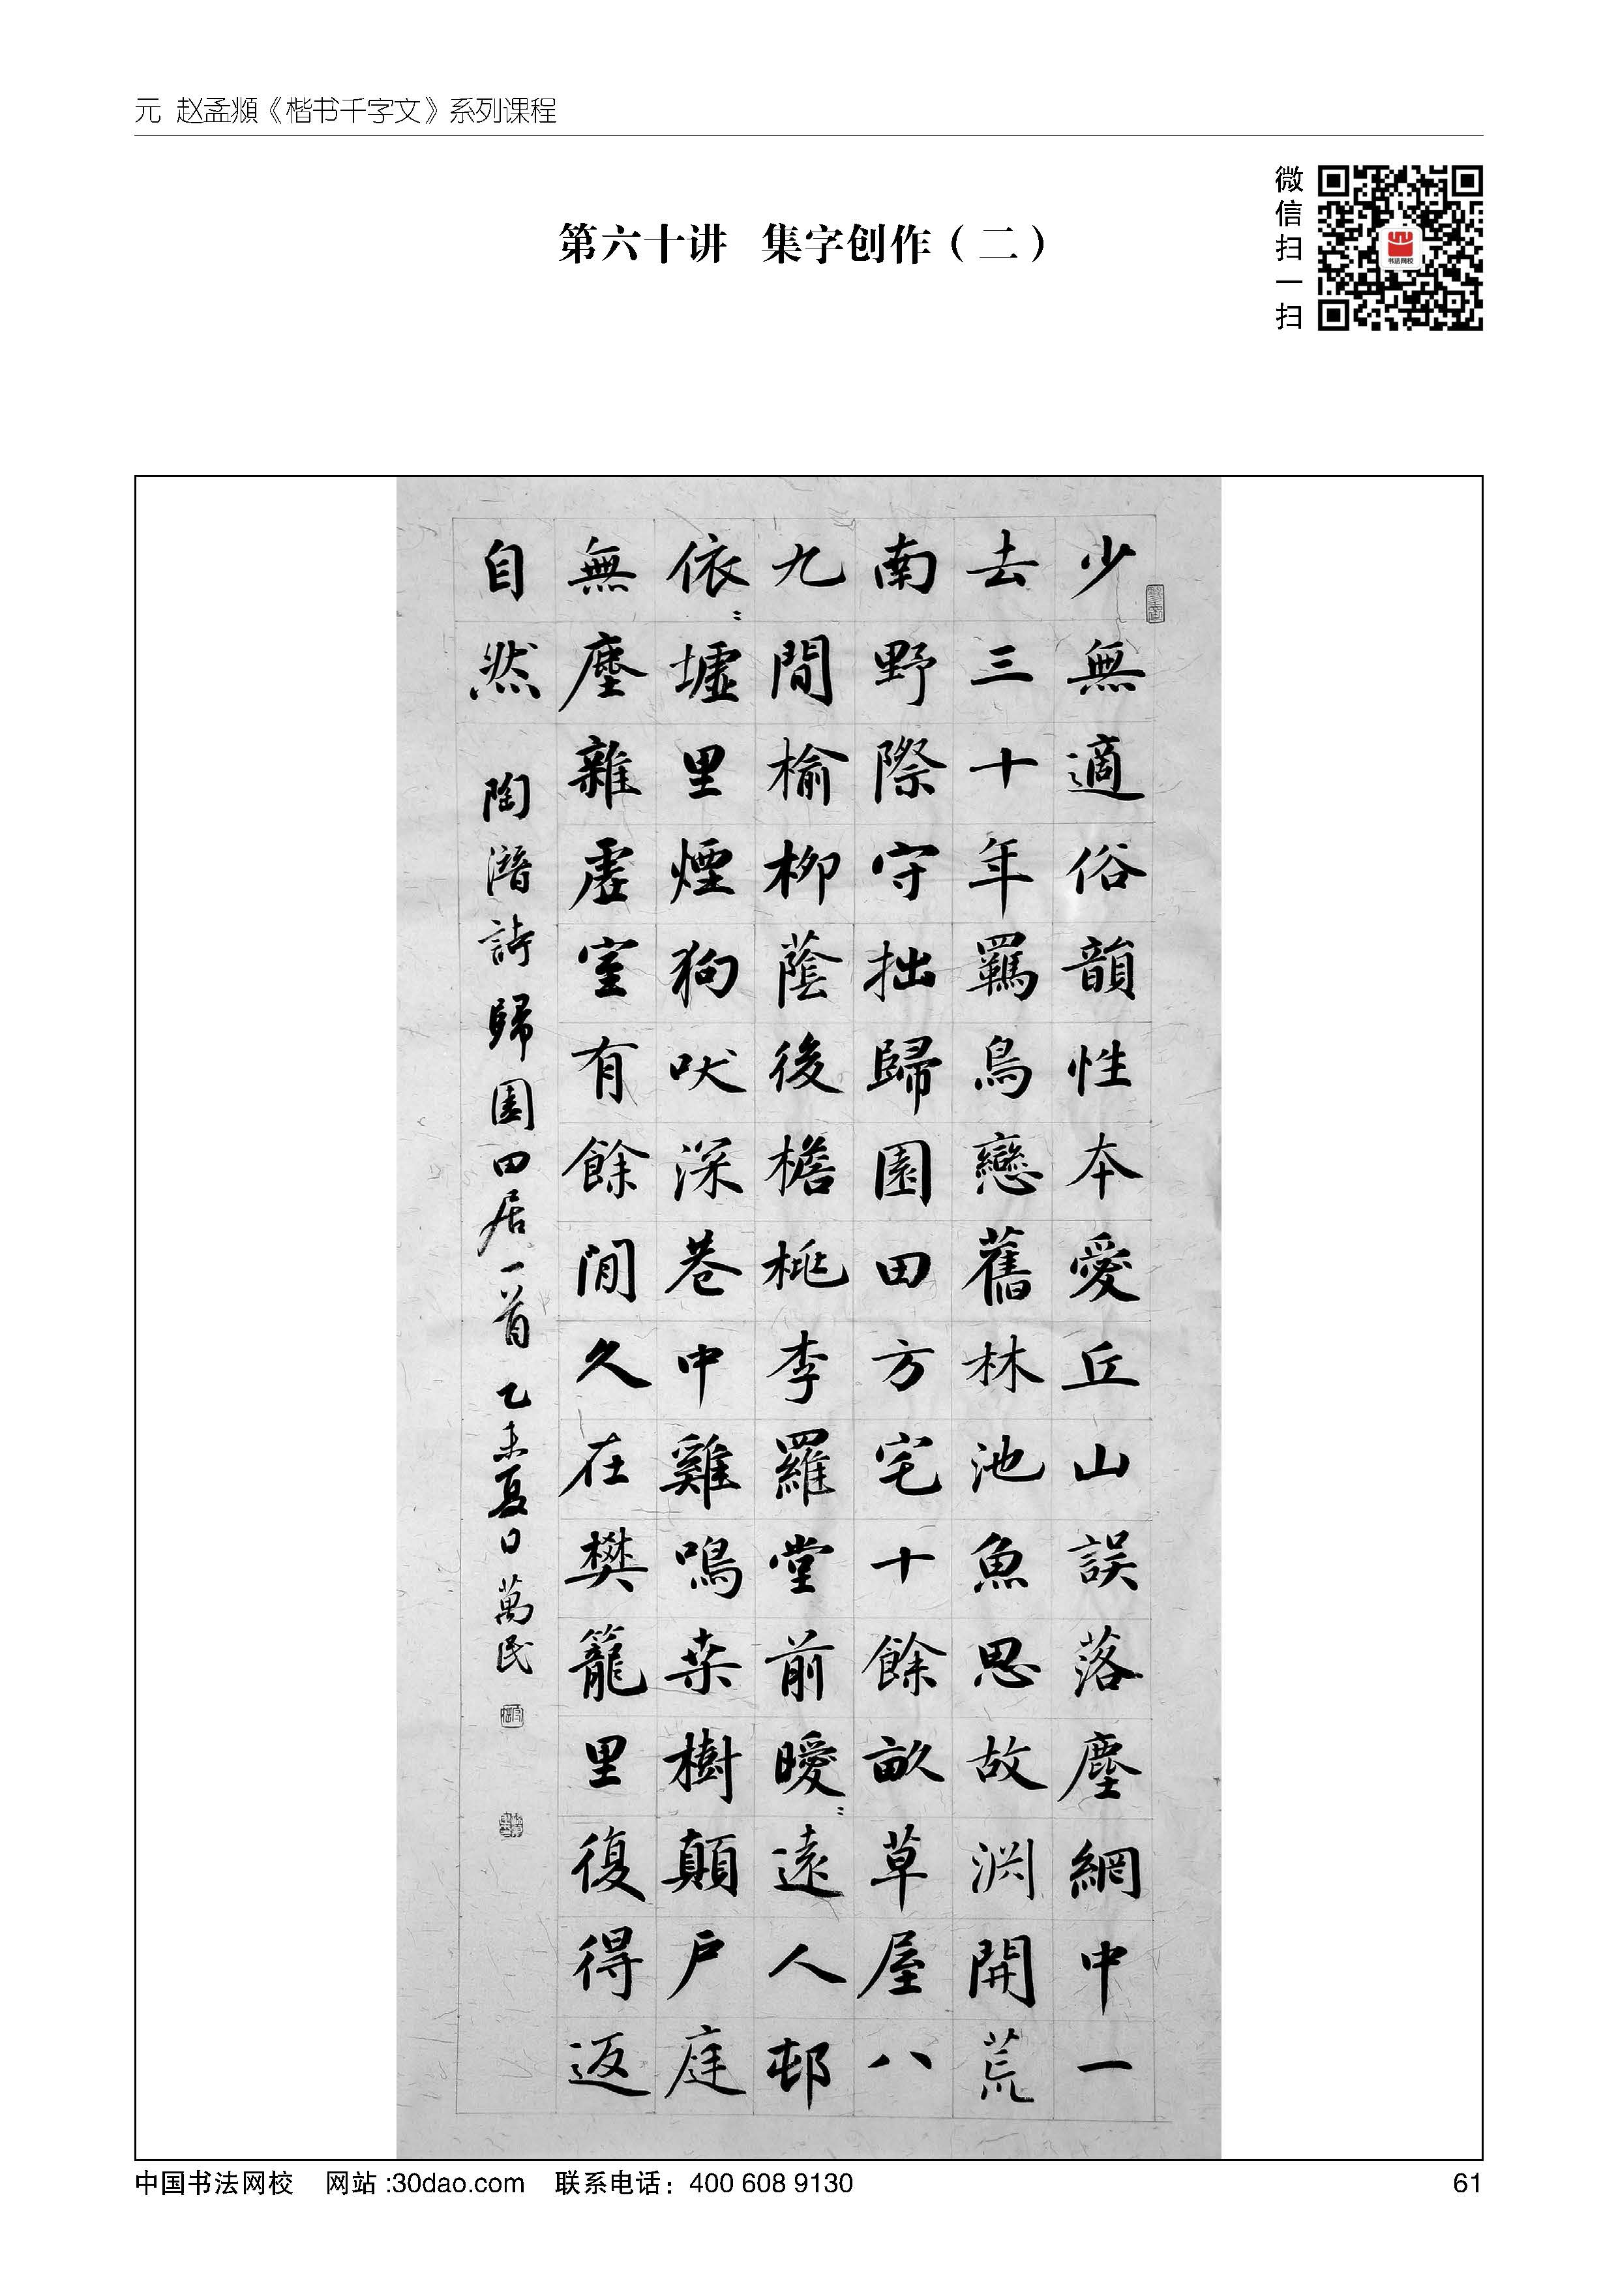 元 赵孟頫《楷书千字文》系列课程
第六十讲 集字创作（二）
微信扫一扫
书法网校
少無適俗韻性本愛丘山誤落塵網中一
去三十年羈鳥戀舊林池魚思故渊開荒
南野際守拙歸園田方宅十餘畝草屋八
九間榆柳蔭後檐桃李羅堂前曖〻遠人邨
依〻墟里煙狗吠深巷中雞鳴桒樹顛户庭
無塵雜虛室有餘閒久在樊籠里復得返
自然 陶潛詩歸園田居一首 乙未夏日萬民
中国书法网校 网站:30dao.com 联系电话：400 608 9130 61